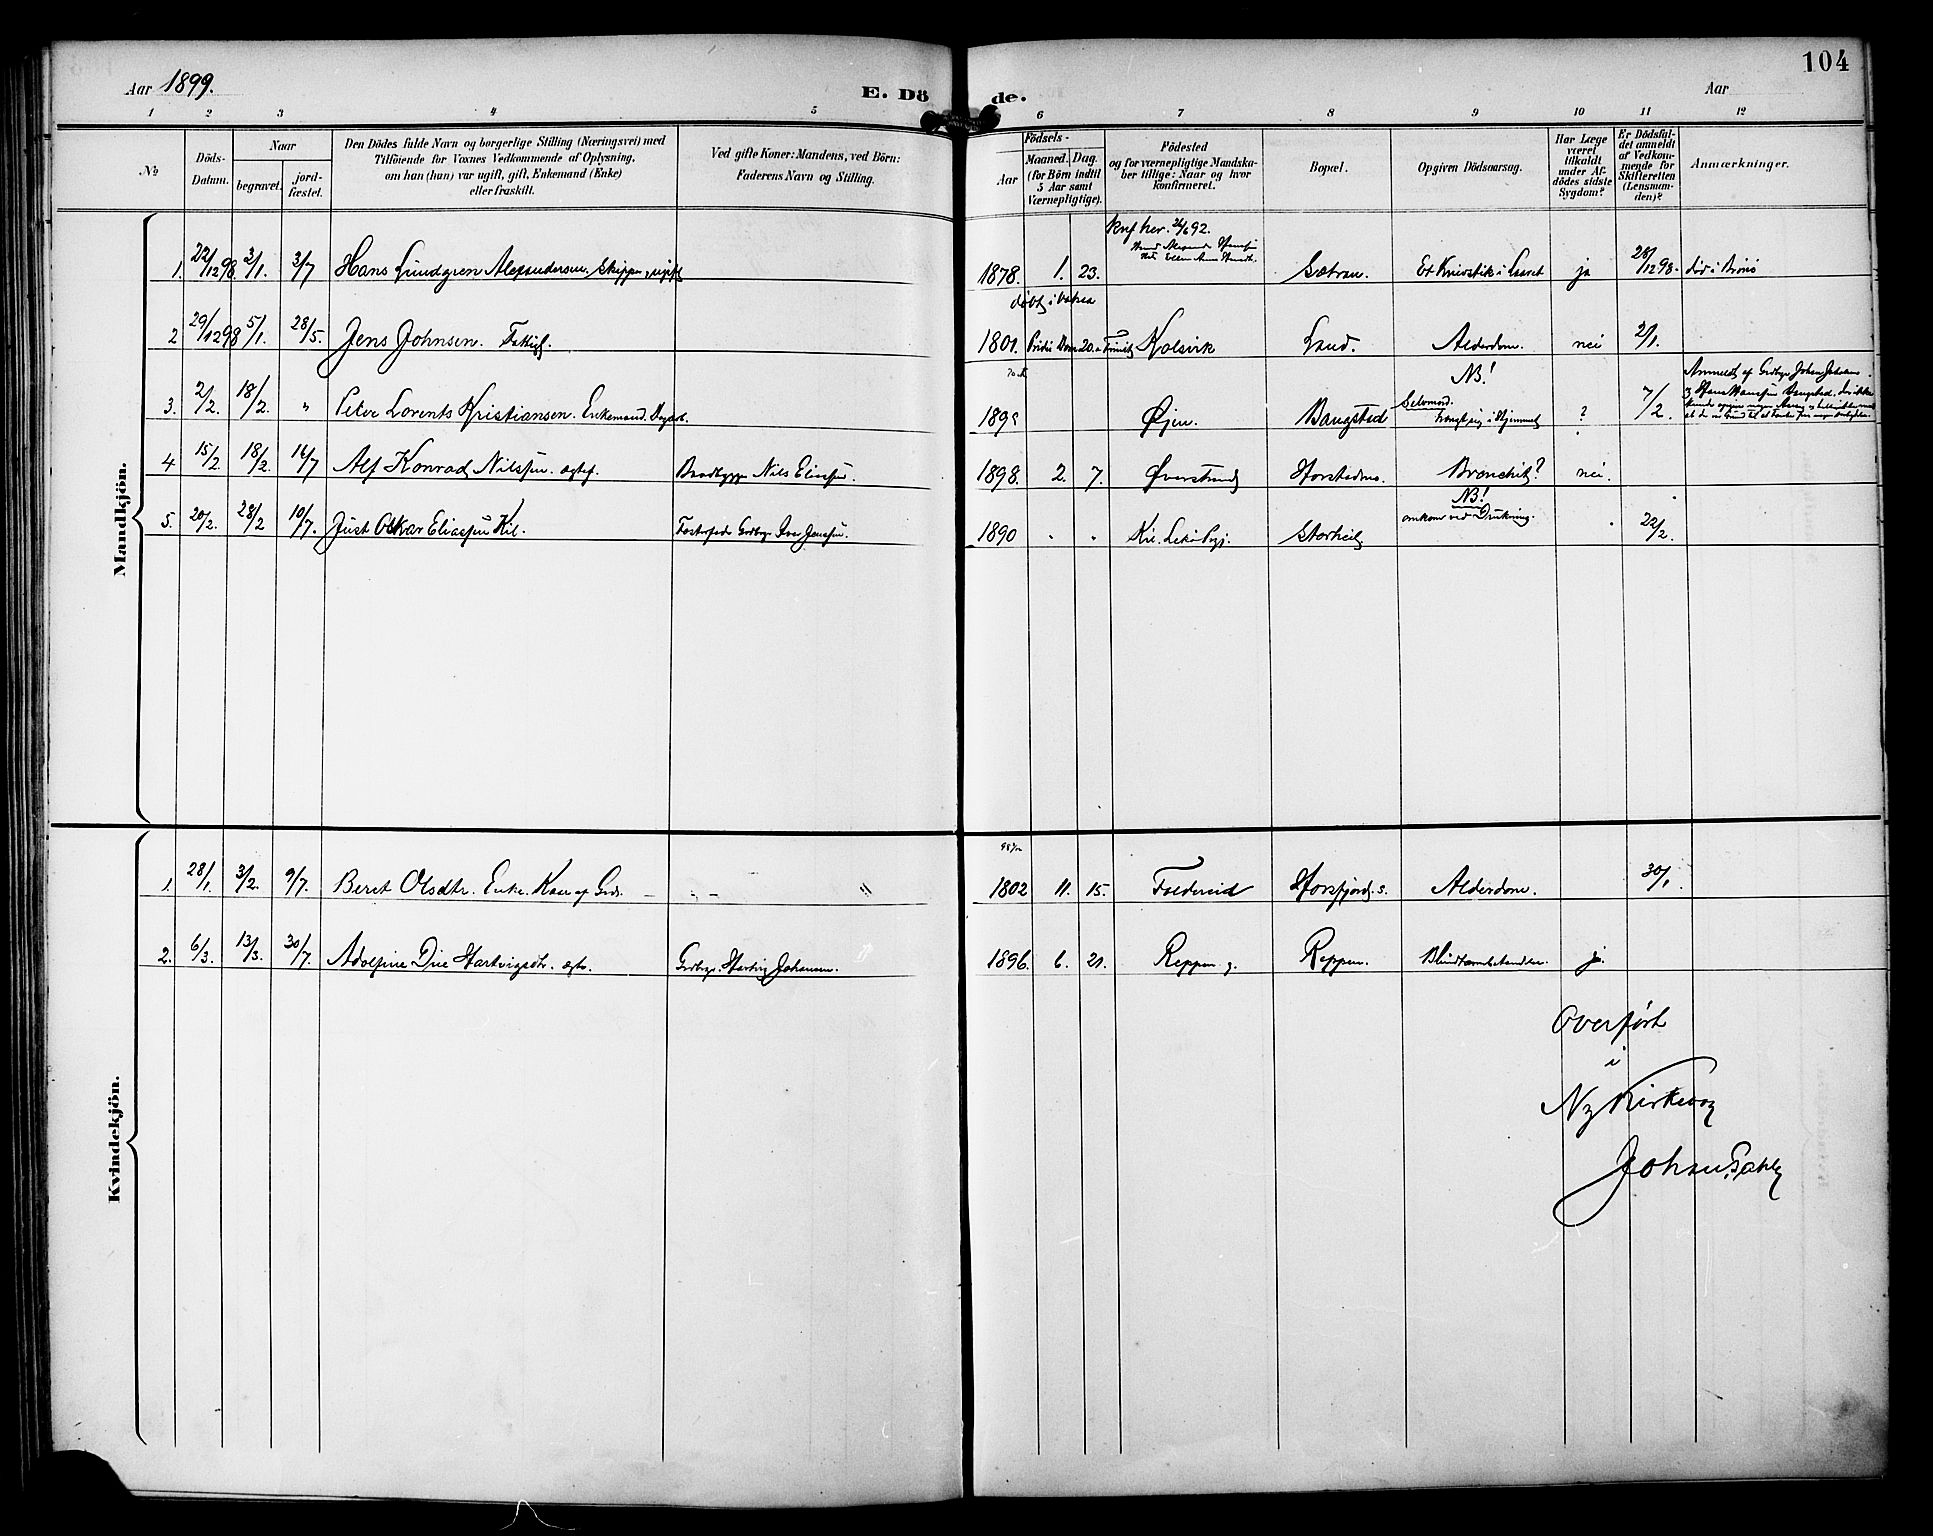 104
Aar 1899.
E. Dö de.
Aar
1 2 3 4 5 6 7 8 9 10 11 12
No
Döds-Datum.
Naar
begravet.
jord-fæstet.
Den Dödes fulde Navn og borgerlige Stilling (Næringsvei) med
Tilföiende for Voxnes Vedkommende af Oplysning,
om han (hun) var ugift, gift, Enkemand (Enke)
eller fraskilt.
Ved gifte Koner: Mandens, ved Börn:
Faderens Navn og Stilling.
Födsels-
Aar
Maaned. Dag.
(for Börn indtil
5 Aar samt
Værnepligtige).
Födested
og for værnepligtige Mandska-
ber tillige: Naar og hvor
konfirmeret.
Bopæl.
Opgiven Dödsaarsag.
Har Læge
været
tilkaldt
under Af-
dödes sidste
Sygdom?
Er Dödsfal-
det anmeldt
af Vedkom-
mende for
Skifteretten
(Lensman-
den)?
Anmærkninger.
Mandkjön.
konf her. 26/6 92.
1. 22/12 98. 3/1. 3/7 Hans Lundgren Alexandersen. Skipper, ugift 1878. 1. 23. Sætran. Et Knivstik i Laaret ja 28/12 98. død i Brønø
døbt i
2 29/12 98 5/1. 28/5. Jens Johnsen. 1801. Kolsvik Lund. Alderdom. nei 2/1.
NB!
Selvmord.
3. 2/2. 18/2. " Peter Lorents Kristiansen. Enkemand. Øjen. Bangstad i Hjemmet ? 7/2.
4 15/2. 18/2. 16/7 Alf Konrad Nilssen. ægtef. Nils Eliassen. 1898. 2. 7. Øverstrand Horstadmo. Bronchit? nei.
NB!
5. 20/2. 28/2 10/7. Just Oskar Eliassen Kil. Fosterfader Grdbgr. Iver Jenssen. 1890 " " Kil. Leka Pgj. Storheil. omkom ved Drukning. 22/2.
Kvindekjön.
1. 28/1. 3/2. 9/7. Beret Olsdtr. Enke. Kaar af Grd. 1802 11. 15. Foldereid Horsfjord s. Alderdom. 30/1.
2. 6/3. 13/3. 30/7. Adolfine Die Hartvigsdtr. ægte. Grdbgr. Hartvig Johansen. 1896. 6. 21. Reppen g. Reppen. Blindtarmbetændelse. ja.
Overført
i
Ny Kirkebog
Johan